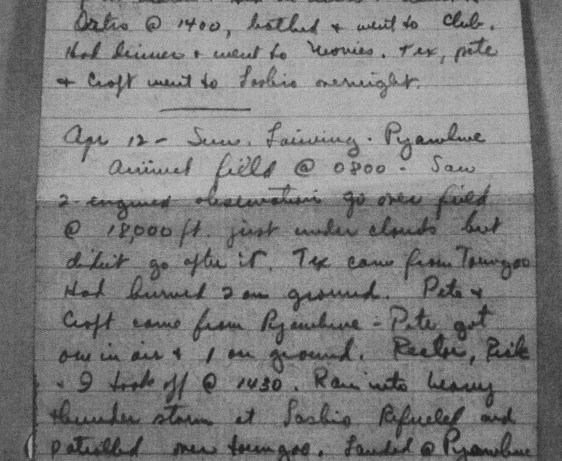 @ 1400, bathed & went to Club.
Had dinner & went to movies. Tex, Pete
& Croft went to Lashio overnight.
Apr 12 - Sun. Loiwing - Pyawbwe
Arrived field @ 0800 - Saw
2-engined observation go over field
@ 18,000 ft. just under clouds but
didn't go after it. Tex came from Toungoo
Had burned 2 on ground. Pete &
Croft came from Pyawbwe - Pete got
one in air & 1 on ground. Rector,
& I took off @ 1430. Ran into heavy
thunder storm at Lashio Refueled and
patrolled over Toungoo. Landed @ Pyawbwe